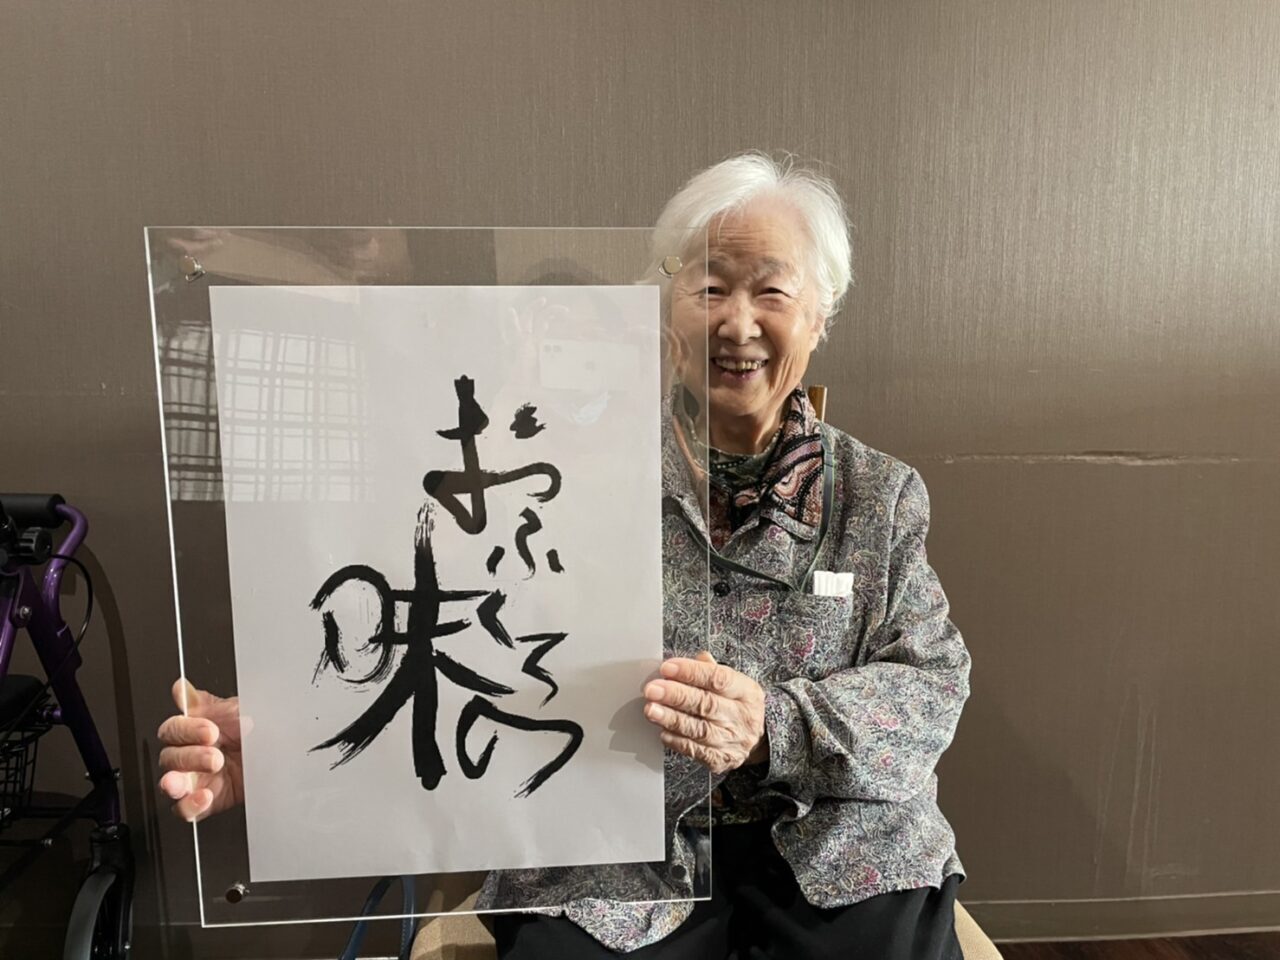 おふくろの
味